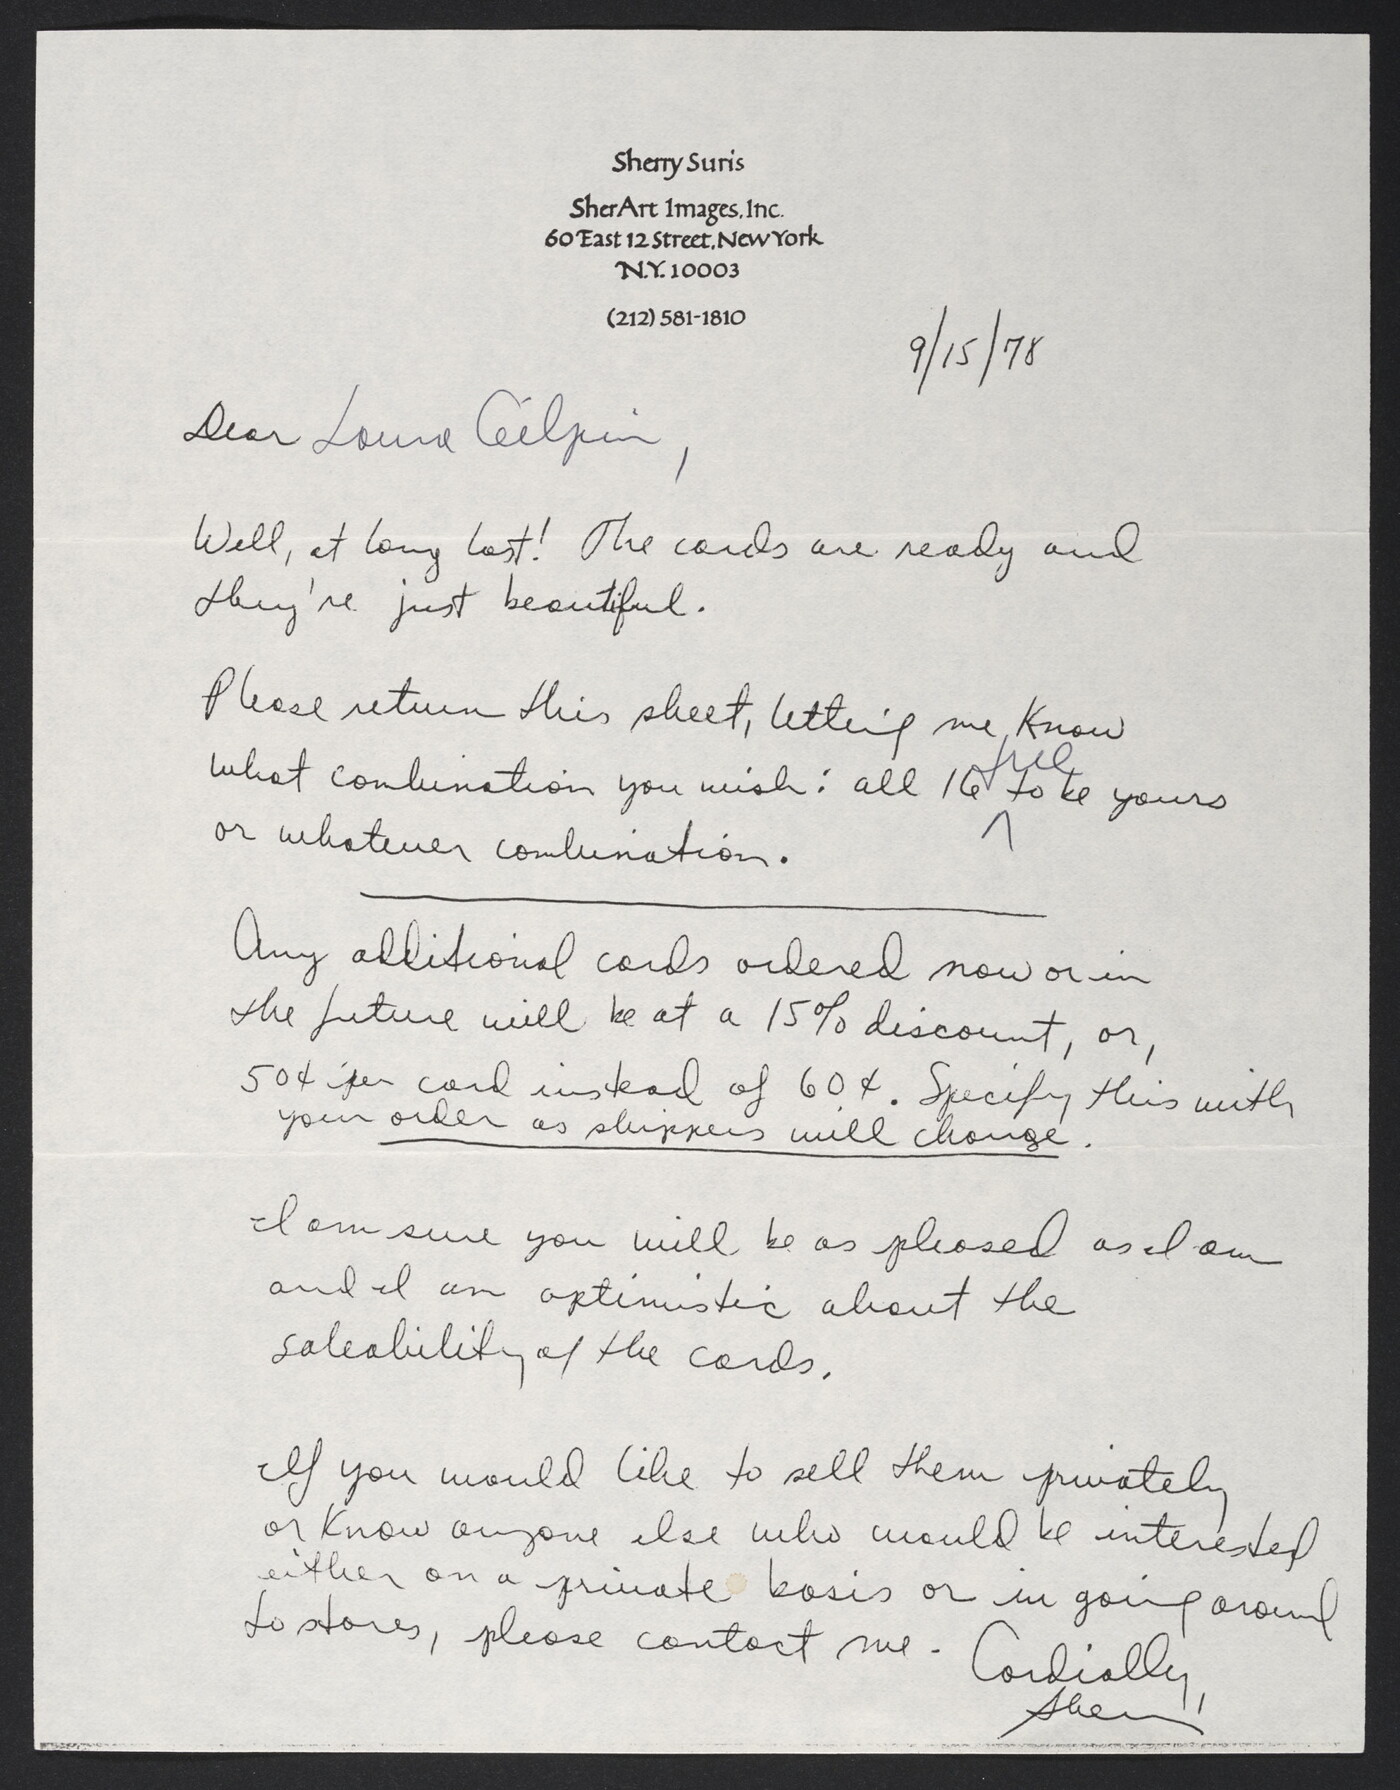 Sherry Suris
SherArt Images, Inc.
60 East 12 Street, New York
N.Y. 10003
(212) 581-1810
9/15/78
Dear Laura Gilpin,
Well, at long last! The cards are ready and
they're just beautiful.
Please return this sheet, letting me know
what combination you wish: all 16 free to be yours
or whatever combination.
Any additional cards ordered now or in
the future will be at a 15% discount, or,
50¢ per card instead of 60¢. Specify this with
your order as shippers will change.
I am sure you will be as pleased as I am
and I am optimistic about the
saleability of the cards.
If you would like to sell them privately
or know anyone else who would be interested
either on a private basis or in going around
to stores, please contact me.
Cordially,
Sherry